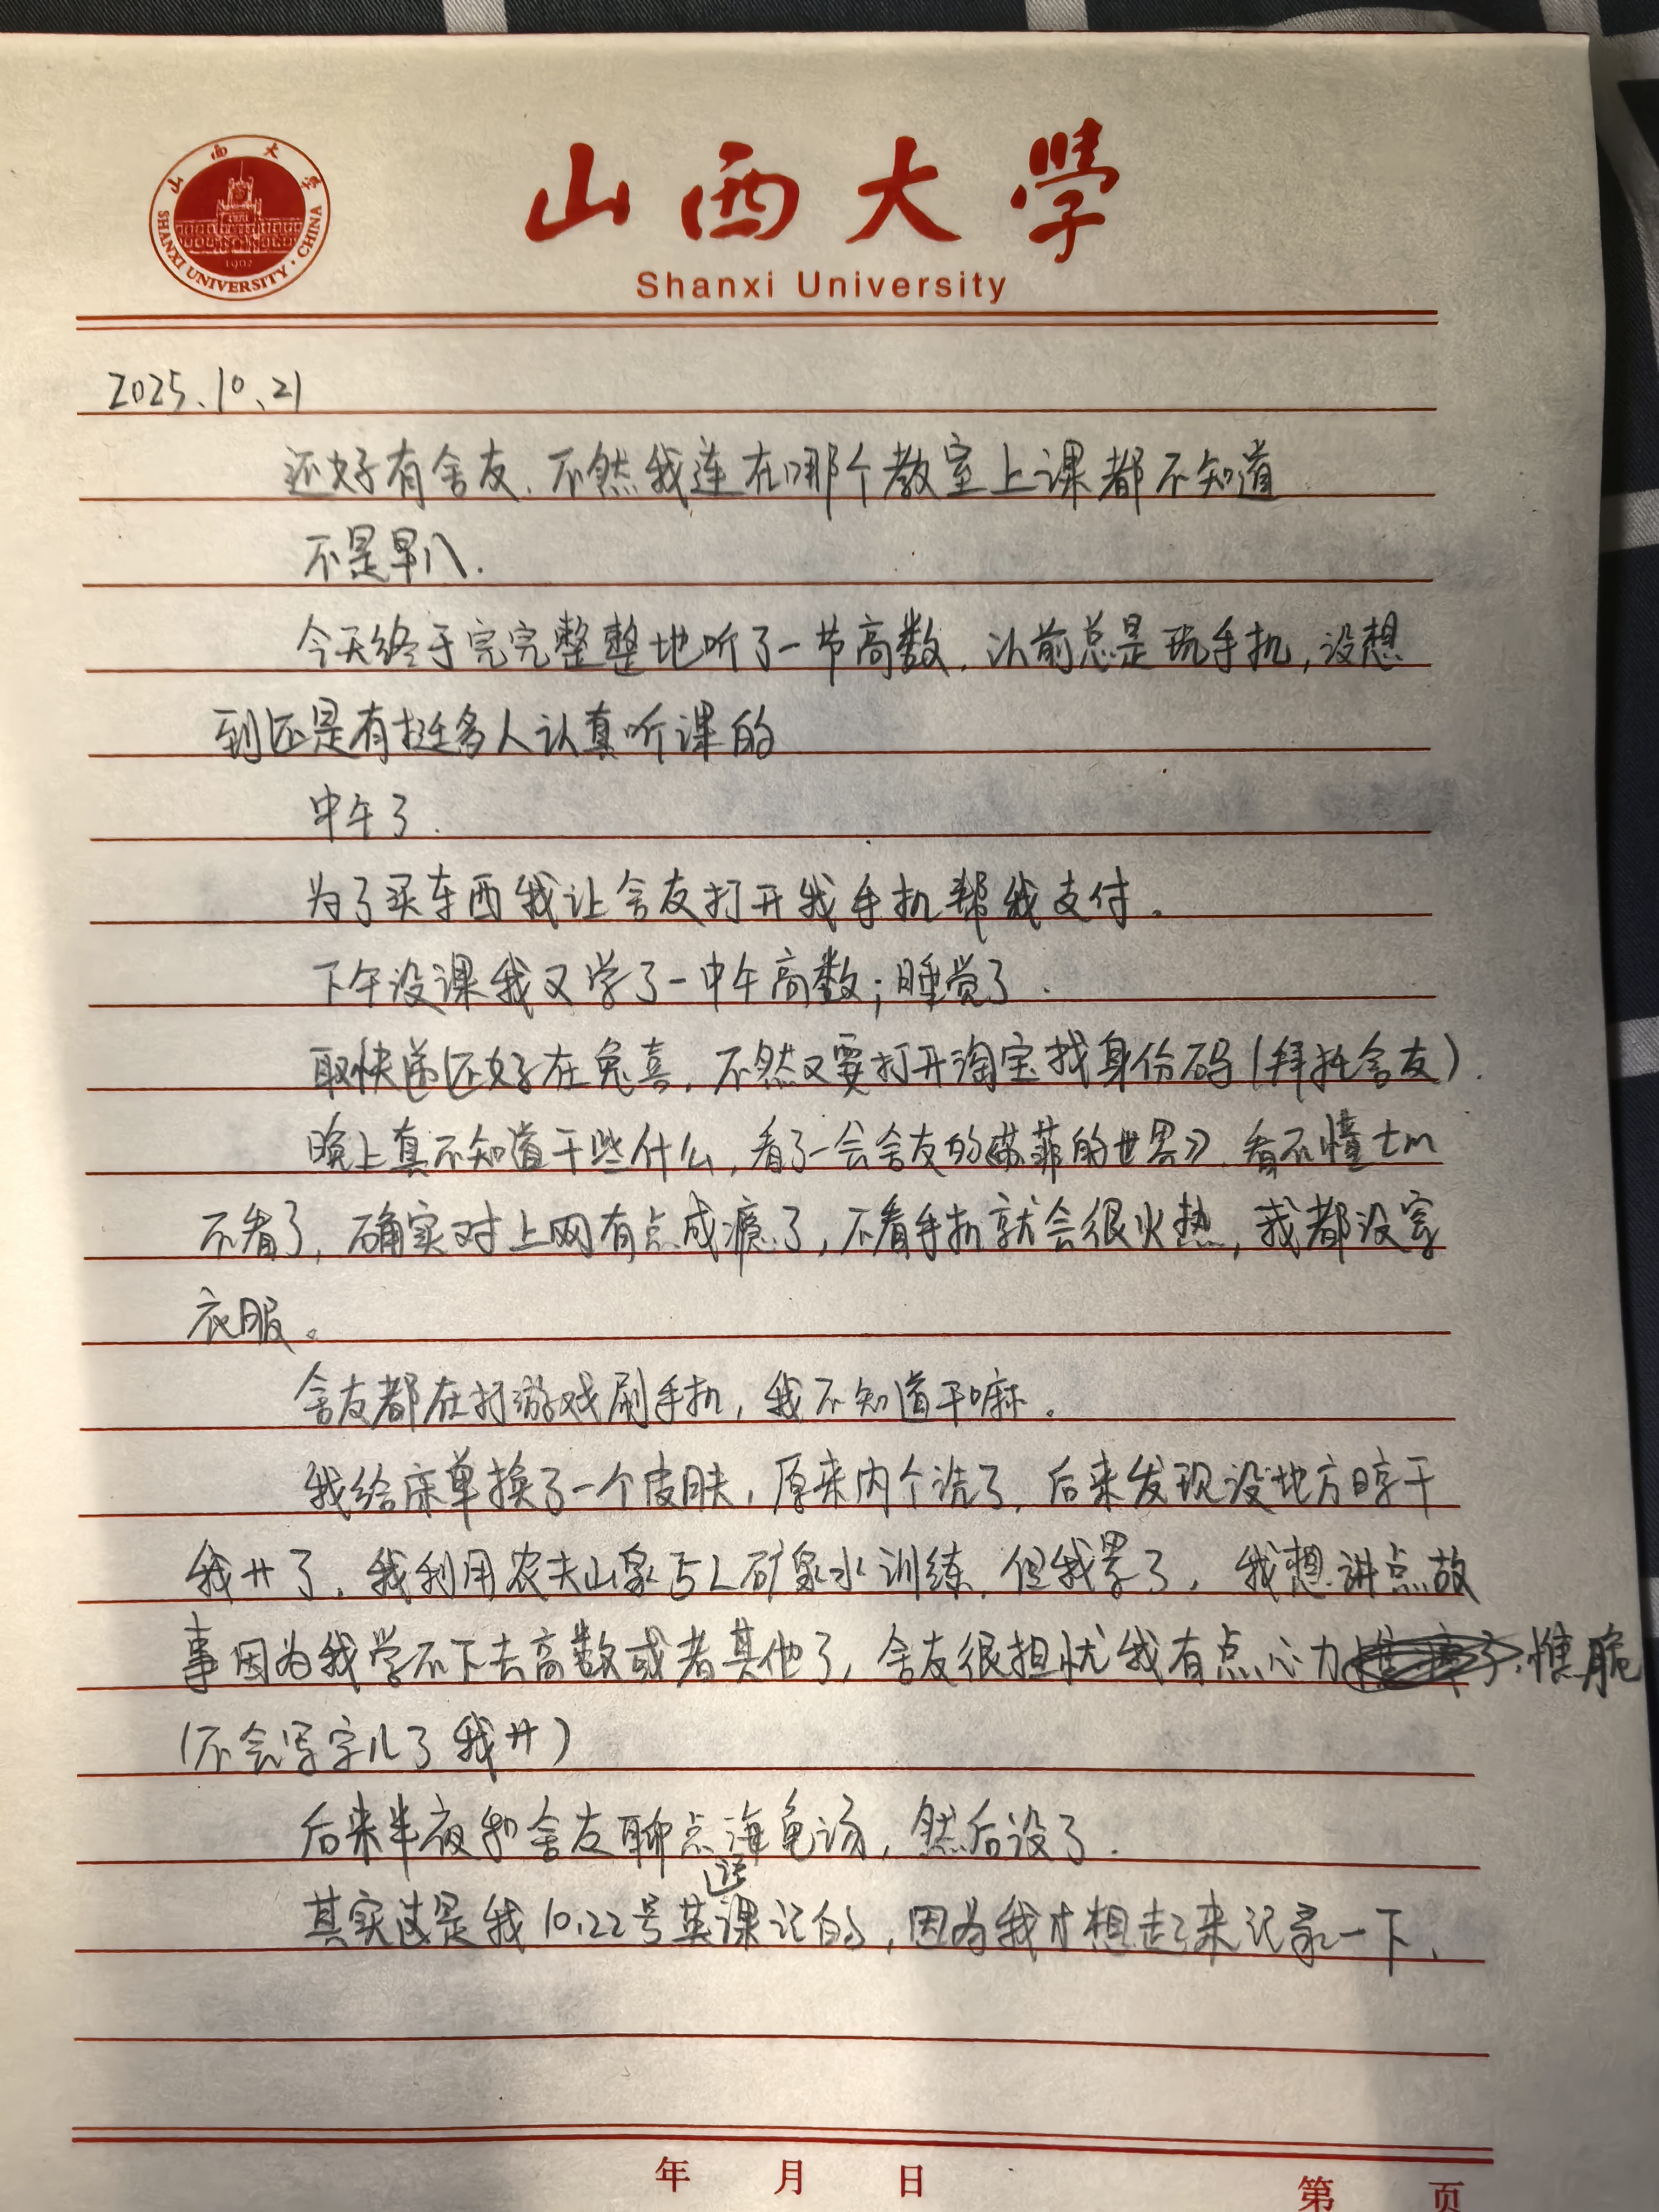 山西大学
SHANXI UNIVERSITY · CHINA
1902
山西大學
Shanxi University
2025、10、21
还好有舍友.不然我连在哪个教室上课都不知道
不是早八.
今天终于完完整整地听了一节高数,以前总是玩手机,没想
到还是有挺多人认真听课的
中午了.
为了买东西我让舍友打开我手机帮我支付。
下午没课我又学了一中午高数;睡觉了.
取快递还好在兔喜,不然又要打开淘宝找身份码(拜托舍友).
晚上真不知道干些什么,看了一会舍友的《苏菲的世界》,看不懂tm
不看了,确实对上网有点成瘾了,不看手机就会很火热,我都没穿
衣服。
舍友都在打游戏刷手机,我不知道干嘛。
我给床单换了一个皮肤,原来内个洗了,后来发现没地方晾干
我艹了,我利用农夫山泉5L矿泉水训练,但我累了,我想讲点故
事因为我学不下去高数或者其他了,舍友很担忧我有点心力憔脆
(不会写字儿了我艹)
后来半夜和舍友聊点海龟汤,然后没了.
其实这是我10.22号英语课记的,因为我才想起来记录一下、
年 月 日
第 页